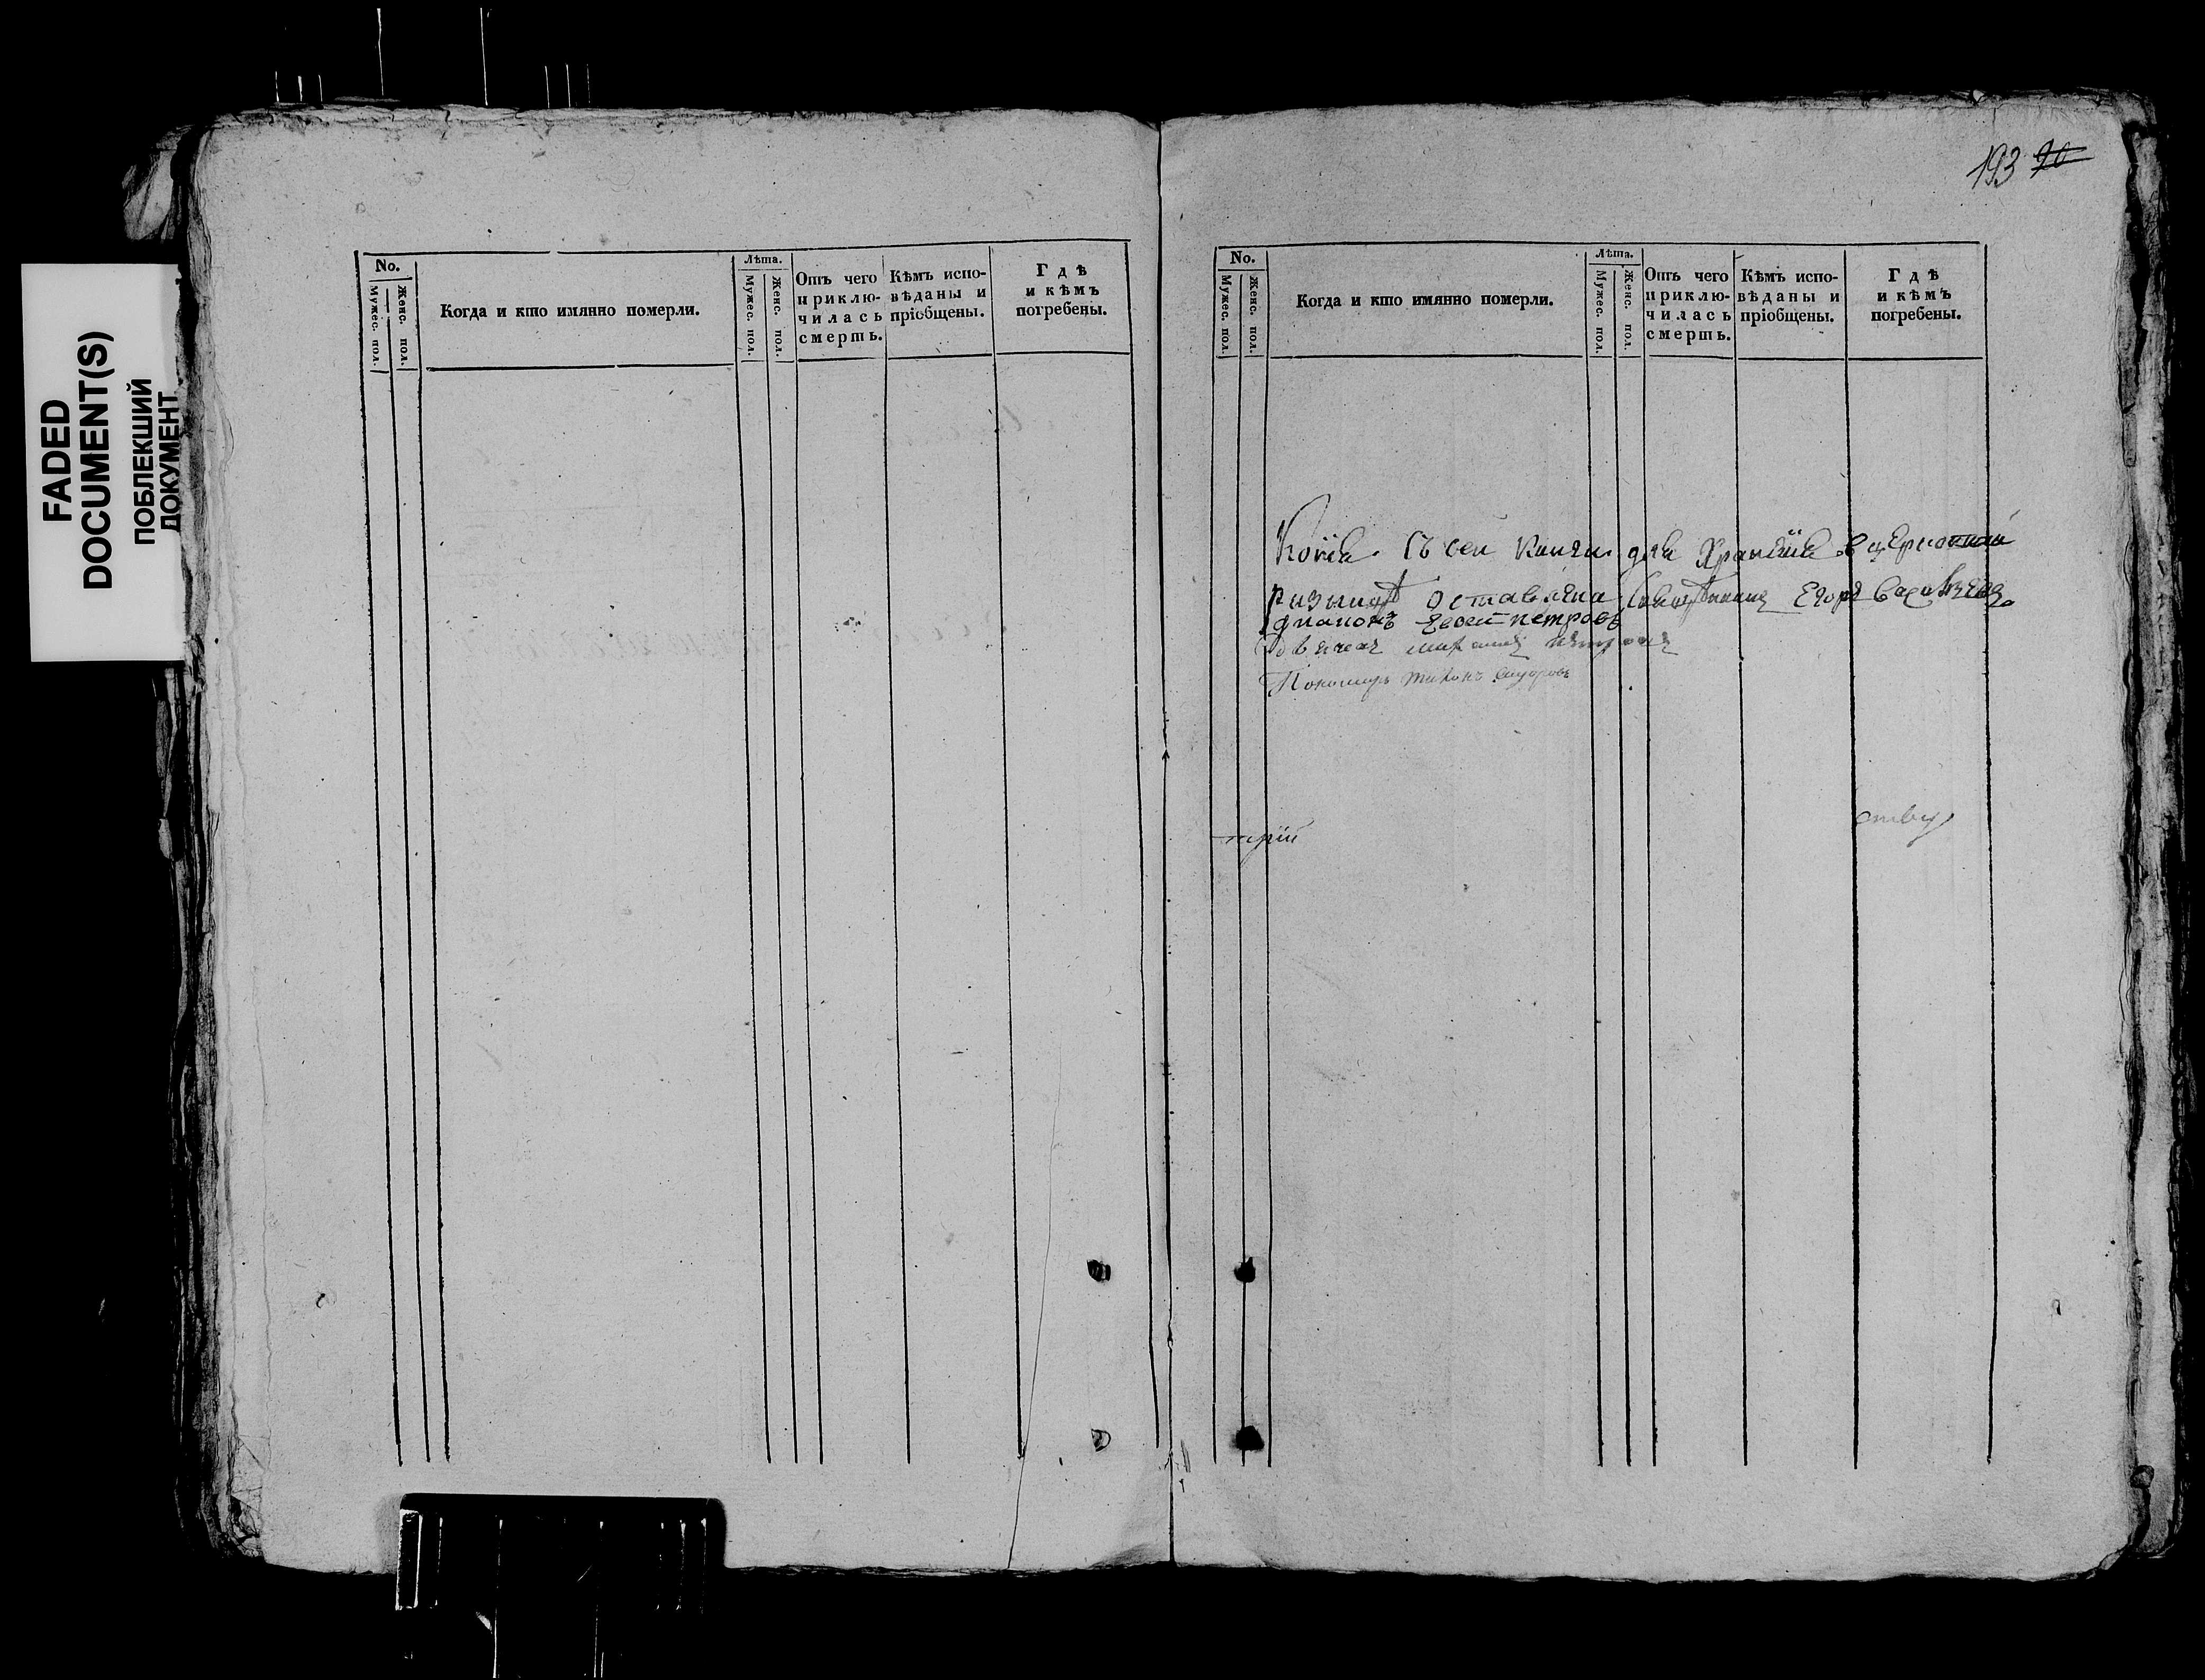 193 90
FADED
DOCUMENT(S)
ПОБЛЕКШИЙ
ДОКУМЕНТ
No.
Мужес. пол.
Женс. пол.
Когда и кто имянно померли.
Лѣта.
Мужес. пол.
Женс. пол.
Отъ чего
приклю-
чилась
смерть.
Кѣмъ испо-
вѣданы и
пріобщены.
Гдѣ
и кѣмъ
погребены.
No.
Мужес. пол.
Женс. пол.
Когда и кто имянно померли.
Лѣта.
Мужес. пол.
Женс. пол.
Отъ чего
приклю-
чилась
смерть.
Кѣмъ испо-
вѣданы и
пріобщены.
Гдѣ
и кѣмъ
погребены.
Копія съ сей книги для храненія в церковной
ризницѣ оставлена Священникъ Егоръ
диаконъ петровъ
Пономарь тихонъ сидоровъ
трій
ству